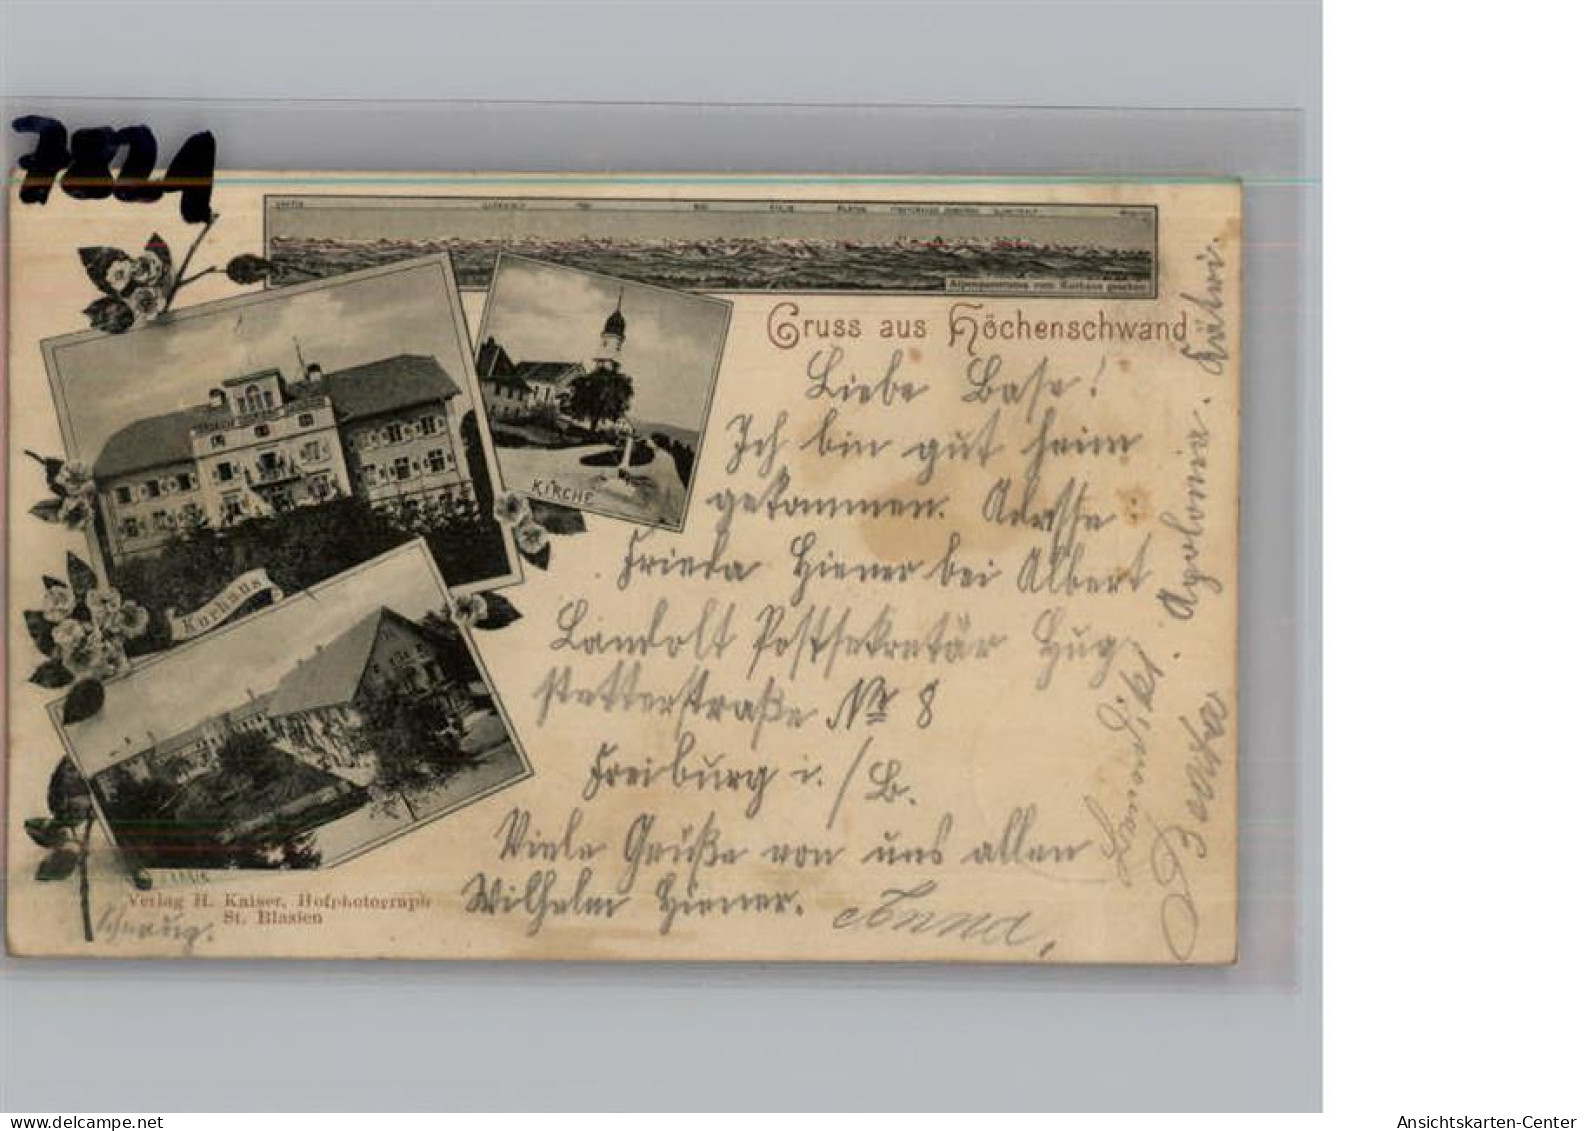 7821
Alpenpanorama vom Kurhaus gesehen
Gruss aus Höchenschwand
Liebe Base!
Ich bin gut heim
gekommen. Adresse:
Frieda Hiener bei Albert
Landolt Postsekretär Hug
stetterstraße № 8
Freiburg i./B.
Viele Grüße von uns allen
Wilhelm Hiener. Anna,
Apolonia.
KIRCHE
Kurhaus
Verlag H. Kaiser, Hofphotograph
St. Blasien
Ansichtskarten-Center